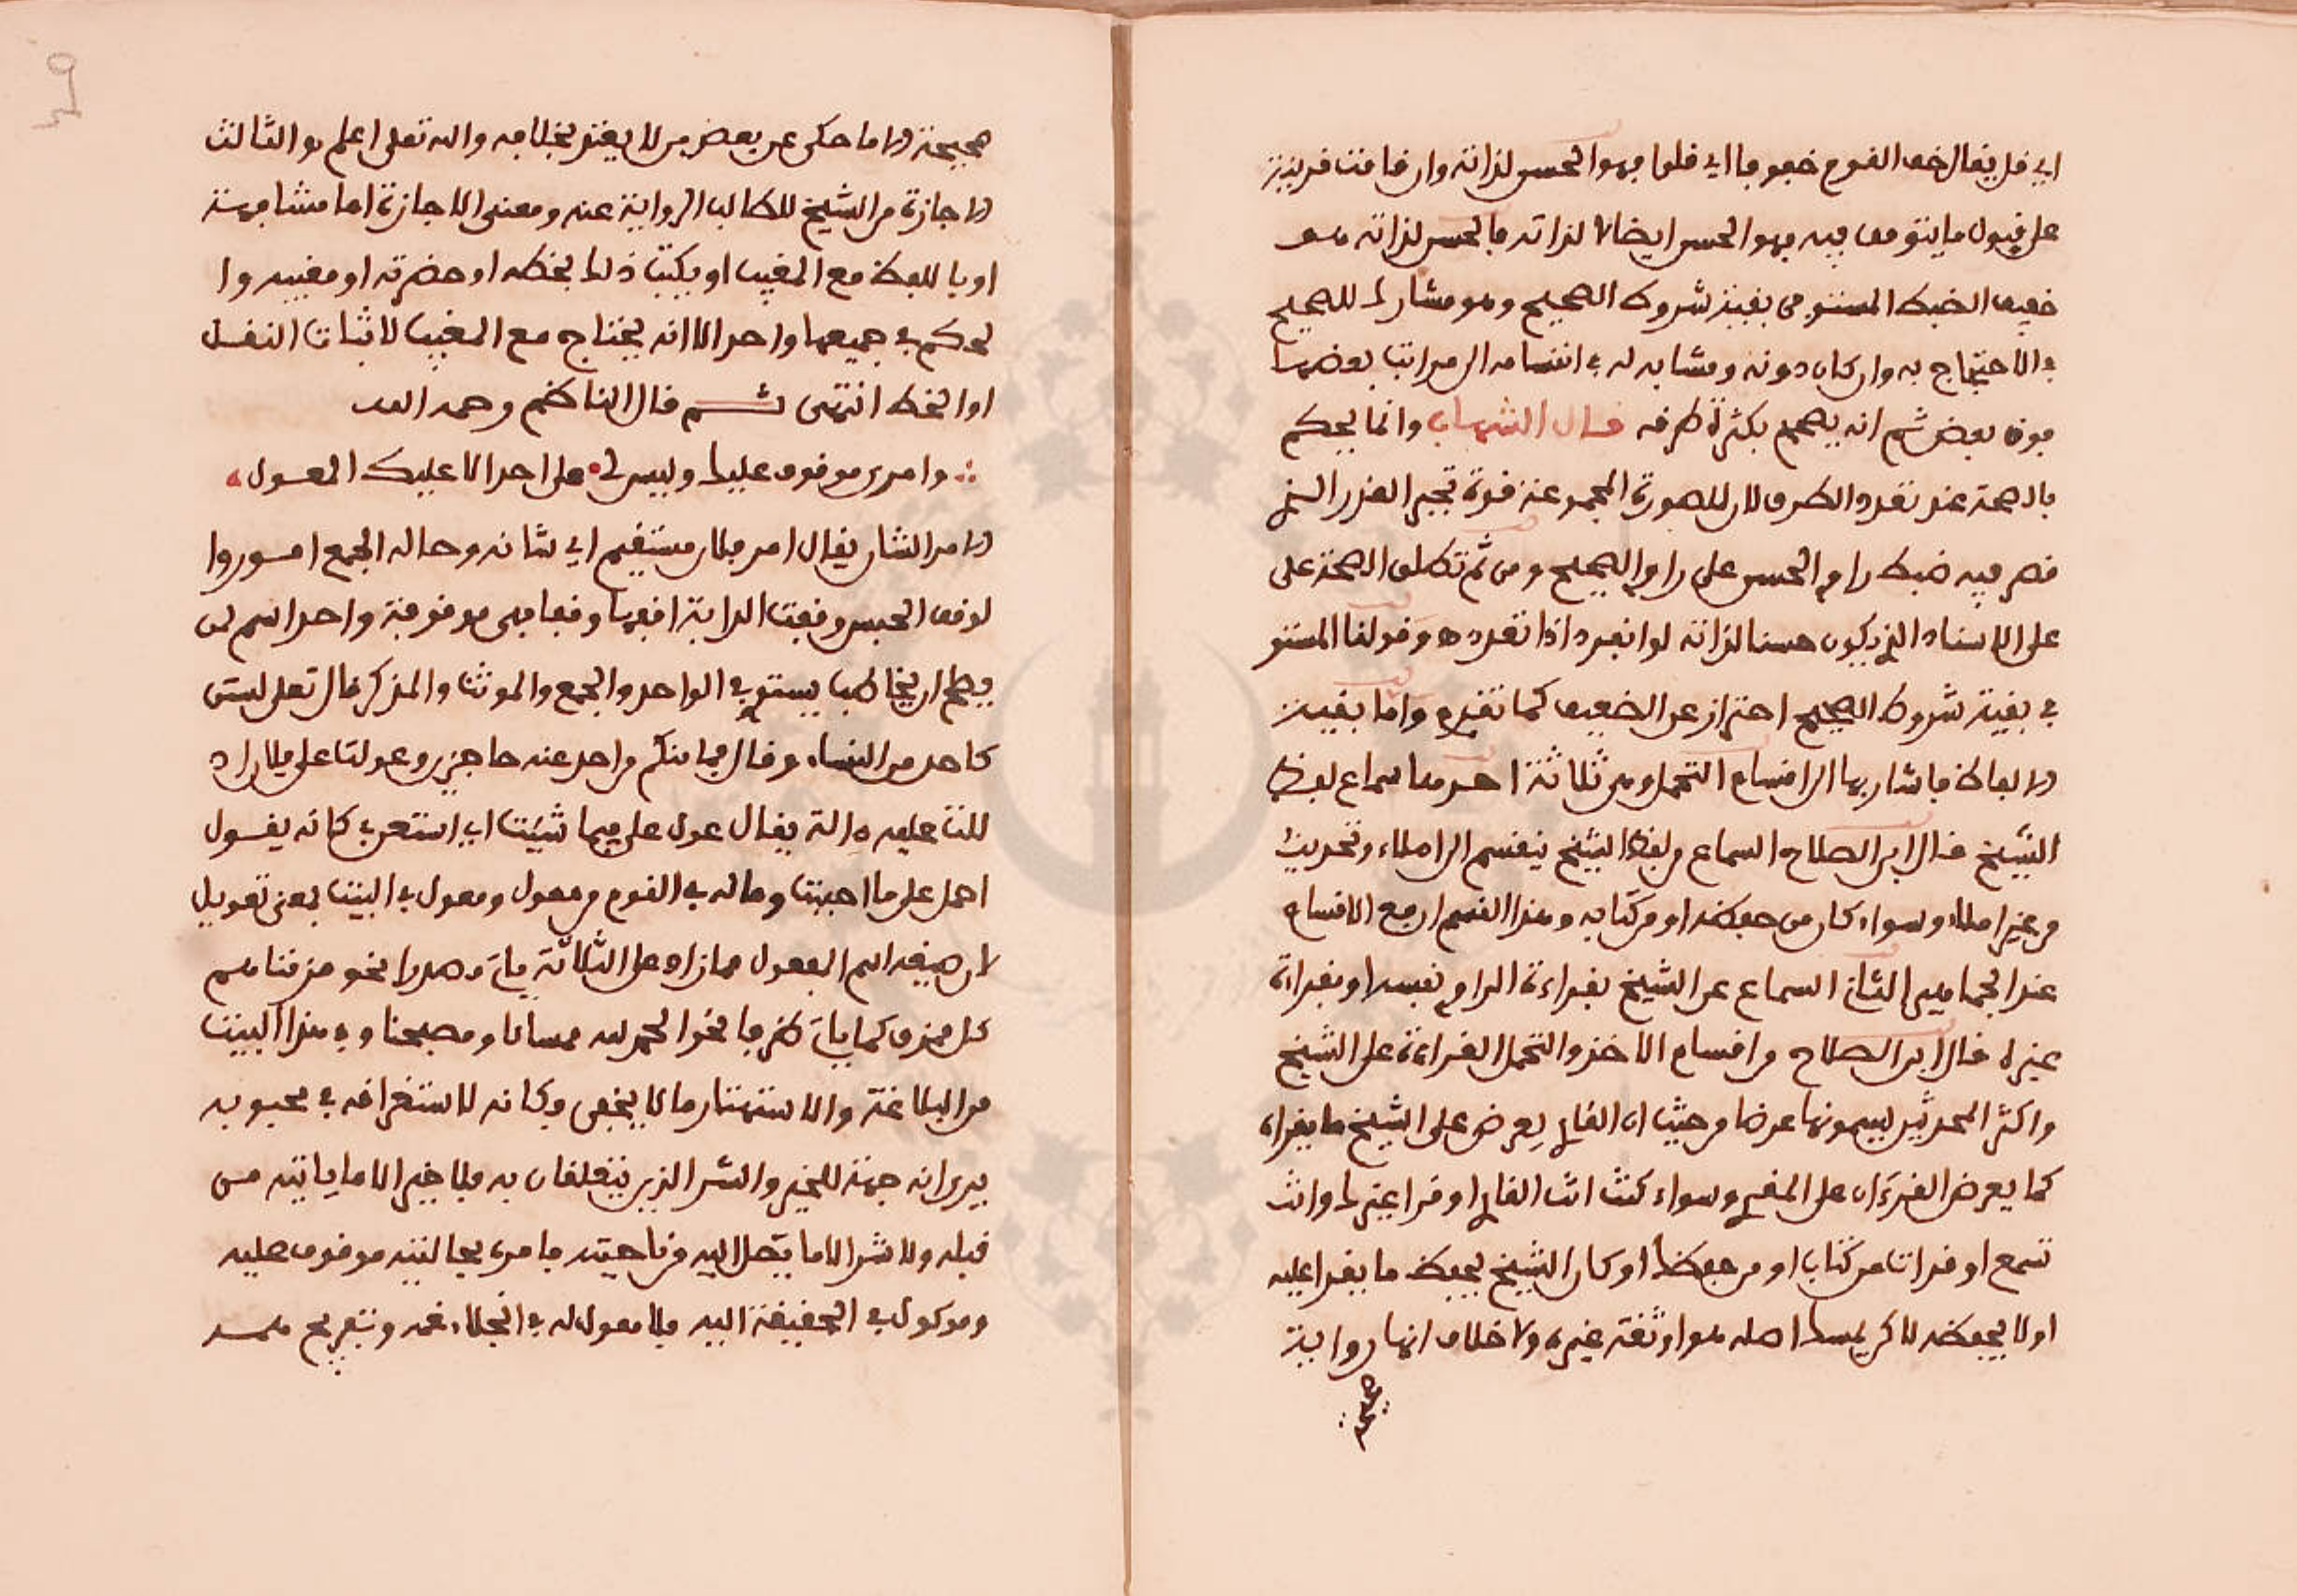 اي قل يقال خف القوم خفوفا اي قلوا فهو الحسن لذاته وان قامت قرينة
على قبول ما يتوقف فيه فهو الحسن ايضا لا لذاته فالحسن لذاته هو
خفيف الضبط المستوفي بقية شروط الصحيح وهو مشارك للصحيح
في الاحتجاج به وان كان دونه ومشابه له في انقسامه الى مراتب بعضها
فوق بعض ثم انه يصحح بكثرة طرفه قال الشهاب وانما يحكم
بالصحة عند تعدد الطرق لان للصورة المجموعة قوة تجبر القدر الذي
قصر فيه ضبط راوي الحسن على راوي الصحيح ومن ثم تطلق الصحة على
على الاسناد الذي يكون حسنا لذاته لو انفرد اذا تعدده وقولنا المستوفي
في بقية شروط الصحيح احتراز عن الضعيف كما تقدم واما بقية
الالفاظ فاشار بها الى اقسام التحمل وهي ثلاثة احدها سماع لفظ
الشيخ قال ابن الصلاح السماع من لفظ الشيخ ينقسم الى املاء وتحديث
من غير املاء وسواء كان من حفظه او من كتابه وهذا القسم ارفع الاقسام
عند الجماهير الثاني السماع عن الشيخ بقراءة الراوي نفسه او بقراءة
غيره قال ابن الصلاح من اقسام الاخذ والتحمل القراءة على الشيخ
واكثر المحدثين يسمونها عرضا من حيث ان القاري يعرض على الشيخ ما يقراه
كما يعرض القرءان على المقري وسواء كنت انت القاري او قرا غيرك وانت
تسمع او قرات من كتاب او من حفظك او كان الشيخ يحفظ ما يقرا عليه
او لا يحفظه لاكن يمسك اصله هو او ثقة غيره ولا خلاف انها رواية
صحيحة
صحيحة الا ما حكي عن بعض من لا يعتد بخلافه والله تعلى اعلم والثالث
الاجازة من الشيخ للطالب الرواية عنه ومعنى الاجازة اما مشافهة
او باللفظ مع المغيب او يكتب ذلك بخطه او حضرته او مغيبه وا
لحكم في جميعها واحد الا انه يحتاج مع المغيب لاثبات النقل
او الخط انتهى ثم قال الناظم رحمه الله
وامري موقوف عليك وليس لي على احد الا عليك المعول
الامر الشان يقال امر فلان مستقيم اي شانه وحاله الجمع امور وا
لوقف الحبس وقفت الدابة اقفها وقفا فهي موقوفة واحد اسم لمن
يصلح ان يخاطب يستوي في الواحد والجمع والمونث والمذكر قال تعلى لستن
كاحد من النساء وقال فما منكم من احد عنه حاجزين وعولت على فلان اد
للت عليه دالة يقال عول علي فيما شئت اي استعن بي كانه يقول
احمل علي ما احببت وما له في القوم من معول ومعول في البيت بمعنى تعويل
لان صيغة اسم المفعول مما زاد على الثلاثة يات مصدرا نحو مزقناهم
كل ممزق كما يات ظرفا نحو الحمد لله ممسانا ومصبحنا وفي هذا البيت
من البلاغة والاستهتار ما لا يخفى وكانه لاستغراقه في محبوبه
يرى انه جهة للخير والشر الذين يتعلقان به فلا خير الا ما ياتيه من
قبله ولا شر الا ما يتصل اليه من ناحيته فامره بحالتيه موقوف عليه
وموكول في الحقيقة اليه فلا معول له في انجلاء غمه وتفريج همه